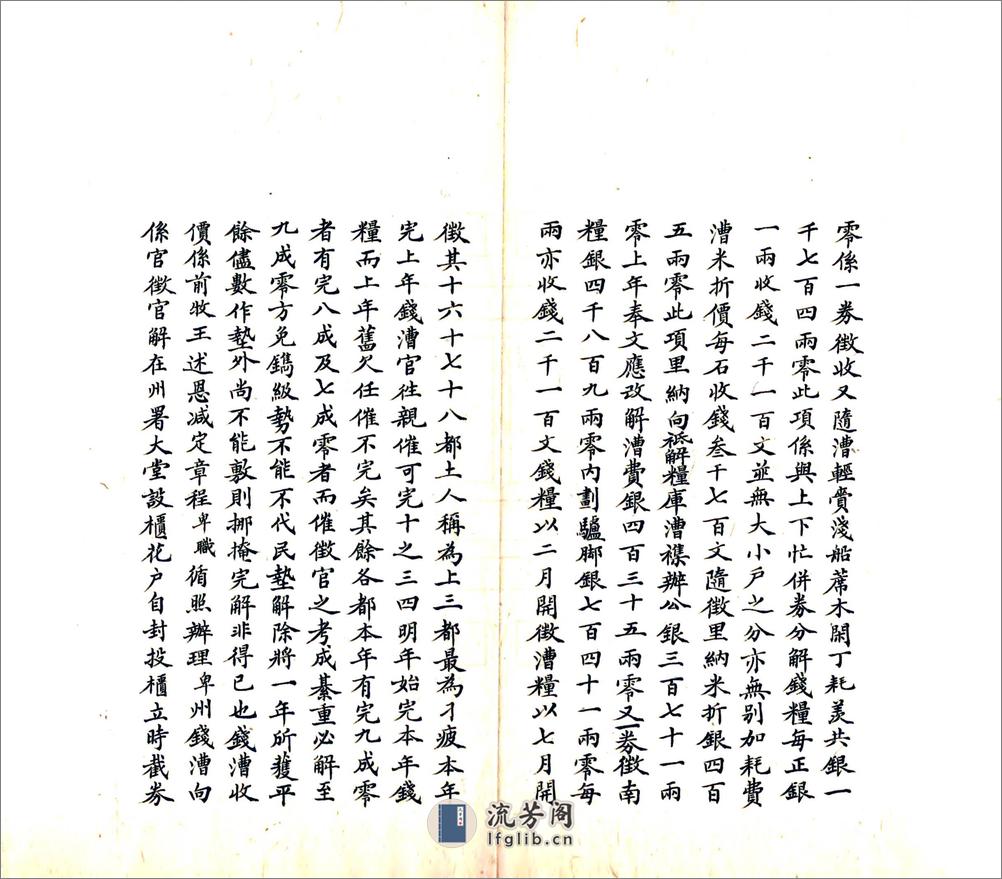 零係一券徵收又隨漕輕賫淺船蓆木閑丁耗羡共銀一
千七百四兩零此項係與上下忙併券分解錢糧每正銀
一兩收錢二千一百文並無大小戶之分亦無别加耗費
漕米折價每石收錢叁千七百文隨徵里納米折銀四百
五兩零此項里納向祗解糧庫漕襍辦公銀三百七十一兩
零上年奉文應改解漕費銀四百三十五兩零又一券徵南
糧銀四千八百九兩零內劃驢脚銀七百四十一兩零每
兩亦收錢二千一百文錢糧以二月開徵漕糧以七月開
徵其十六十七十八都土人稱為上三都最為刁疲本年
完上年錢漕官徃親催可完十之三四明年始完本年錢
糧而上年舊欠任催不完矣其餘各都本年有完九成零
者有完八成及七成零者而催徵官之考成綦重必解至
九成零方免鐫級勢不能不代民墊解除將一年所獲平
餘儘數作墊外尚不能敷則挪掩完解非得已也錢漕收
價係前牧王述恩減定章程卑職循照辦理卑州錢漕向
係官徵官解在州署大堂設櫃花户自封投櫃立時截券
流芳阁
lfglib.cn